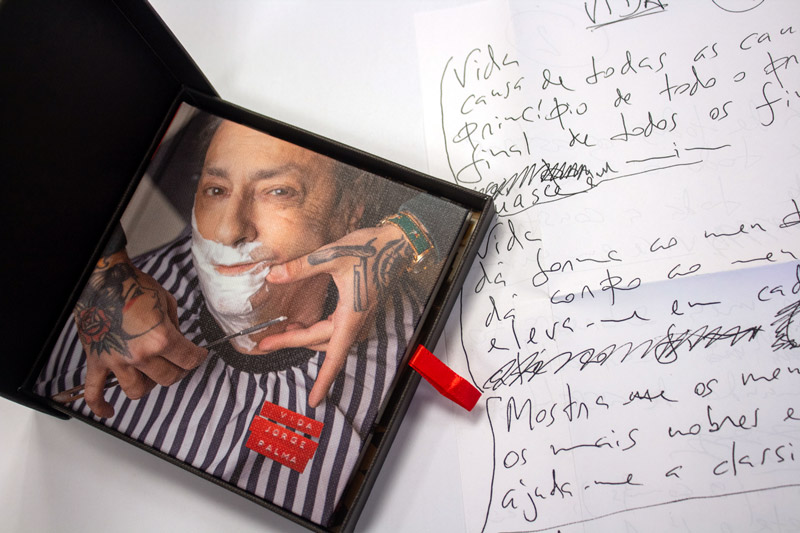 VIDA
JORGE
PALMA
VIDA
Vida
causa de todas as cau
princípio de todo o pri
final de todos os fi
nasce
Vida
dá forma ao meu
dá corpo ao me
eleva-me em cad
Mostra-me os meu
os mais nobres e
ajuda-me a classi